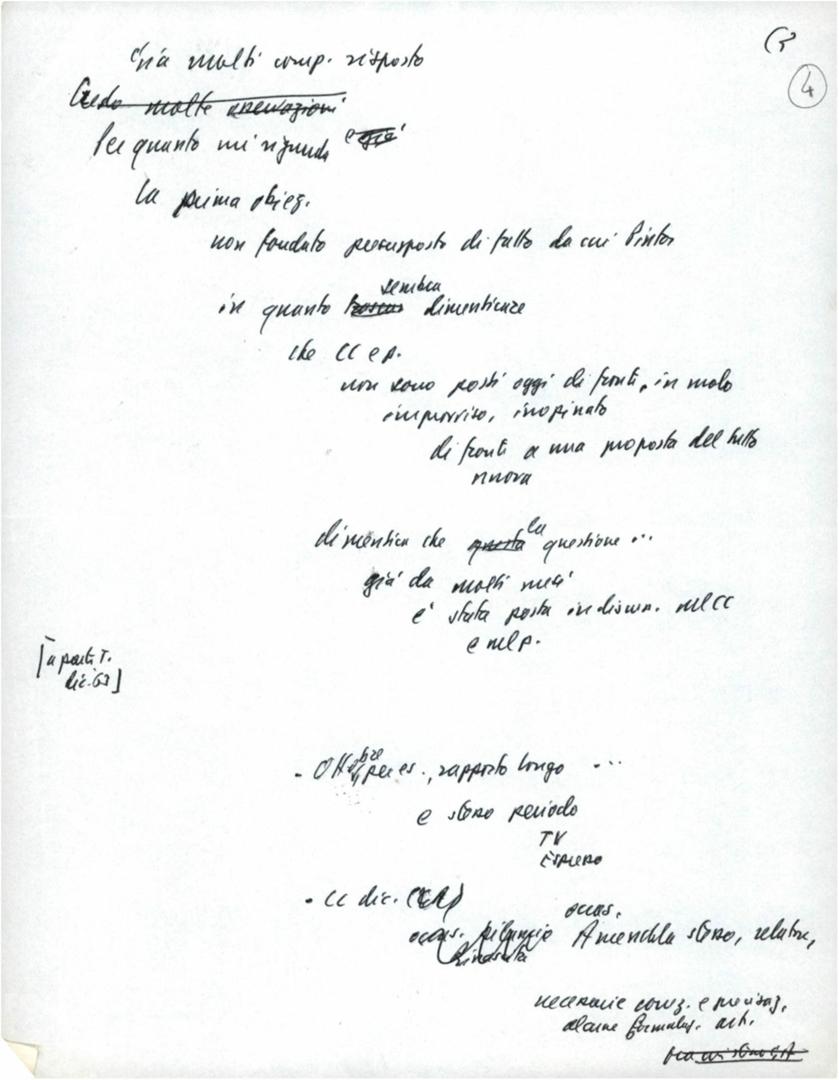 4
Già molti comp. risposto
Credo molte osservazioni
Per quanto mi riguarda e già
la prima obiez.
non fondato presupposto di fatto da cui Pintor
sembra
in quanto dimenticare
che CC e p.
non sono posti oggi di fronte, in modo
improvviso, inopinato
di fronte a una proposta del tutto
nuova
dimentica che questa la questione ...
già da molti mesi
è stata posta in discuss. nel CC
e nel p.
[a parte T.
dic. 63]
- Ottobre per es., rapporto Longo ...
e stesso periodo
TV
Espresso
- CC dic.
occas.
occas. bilancio Amendola stesso, relatore,
Rinascita
necessarie correz. e precisaz.
alcune formulaz. art.